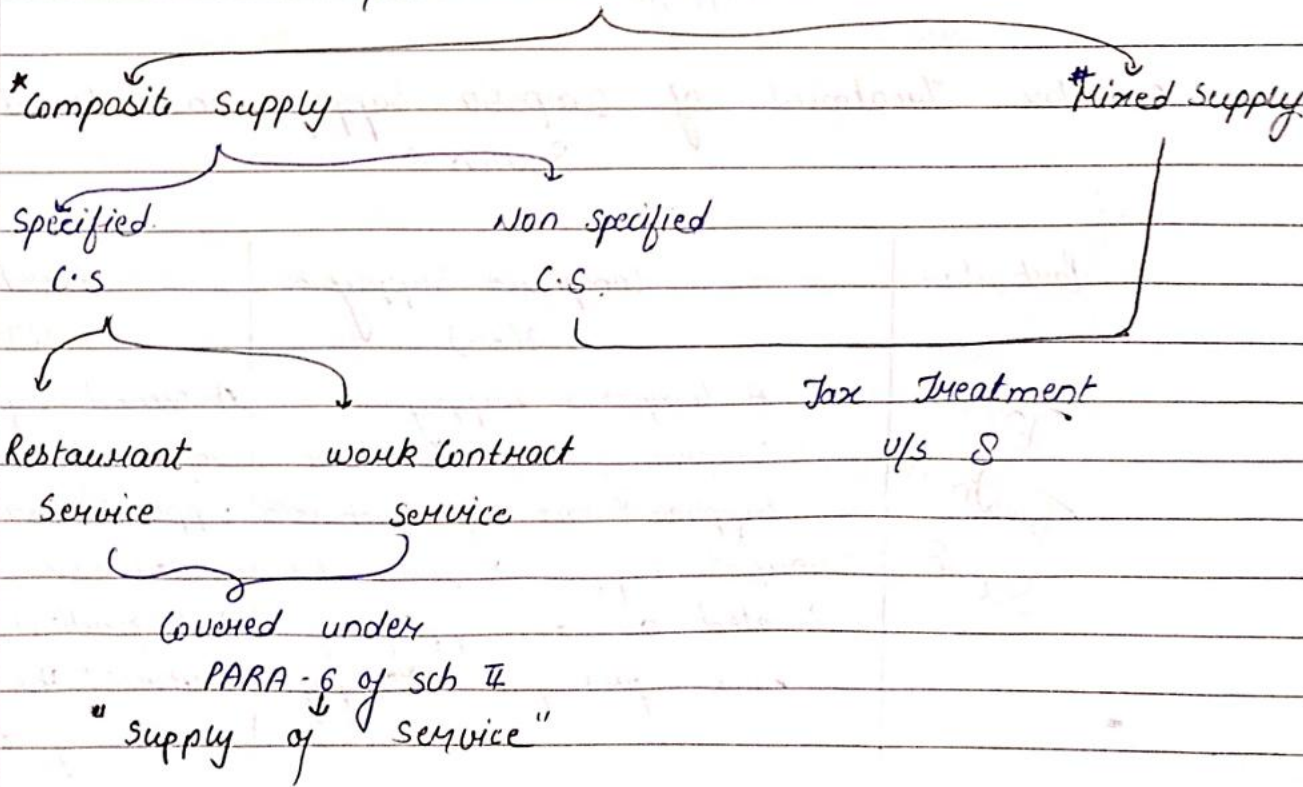 *Composite Supply
#Mixed Supply
Specified
C.S
Non Specified
C.S.
Restaurant
Service
Work Contract
Service
Tax Treatment
U/s 8
Covered under
PARA-6 of sch II
"Supply of Service"